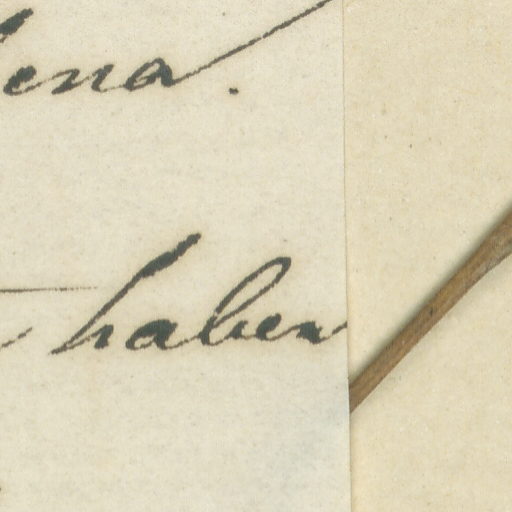 ena.
haben